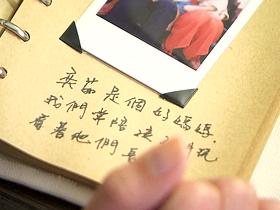 奕茹是個好媽媽,
我們常陪這 玩
看著他們長